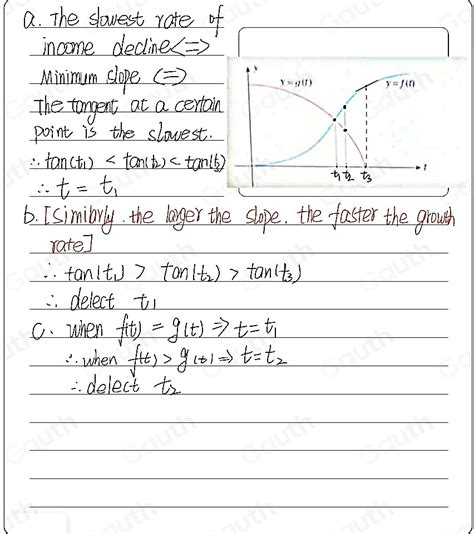 a. The slowest rate of
income decline <=>
Minimum slope <=>
The tangent at a certain
point is the slowest.
∴ tan(t₁) < tan(t₂) < tan(t₃)
∴ t = t₁
y
y = g(t)
y = f(t)
t
t₁ t₂ t₃
b. [Similarly. the larger the slope. the faster the growth
rate]
∴ tan(t₁) > tan(t₂) > tan(t₃)
∴ delect t₁
C. when f(t) = g(t) ⇒ t = t₁
∴ when f(t) > g(t) ⇒ t = t₂
∴ delect t₂
Gauth